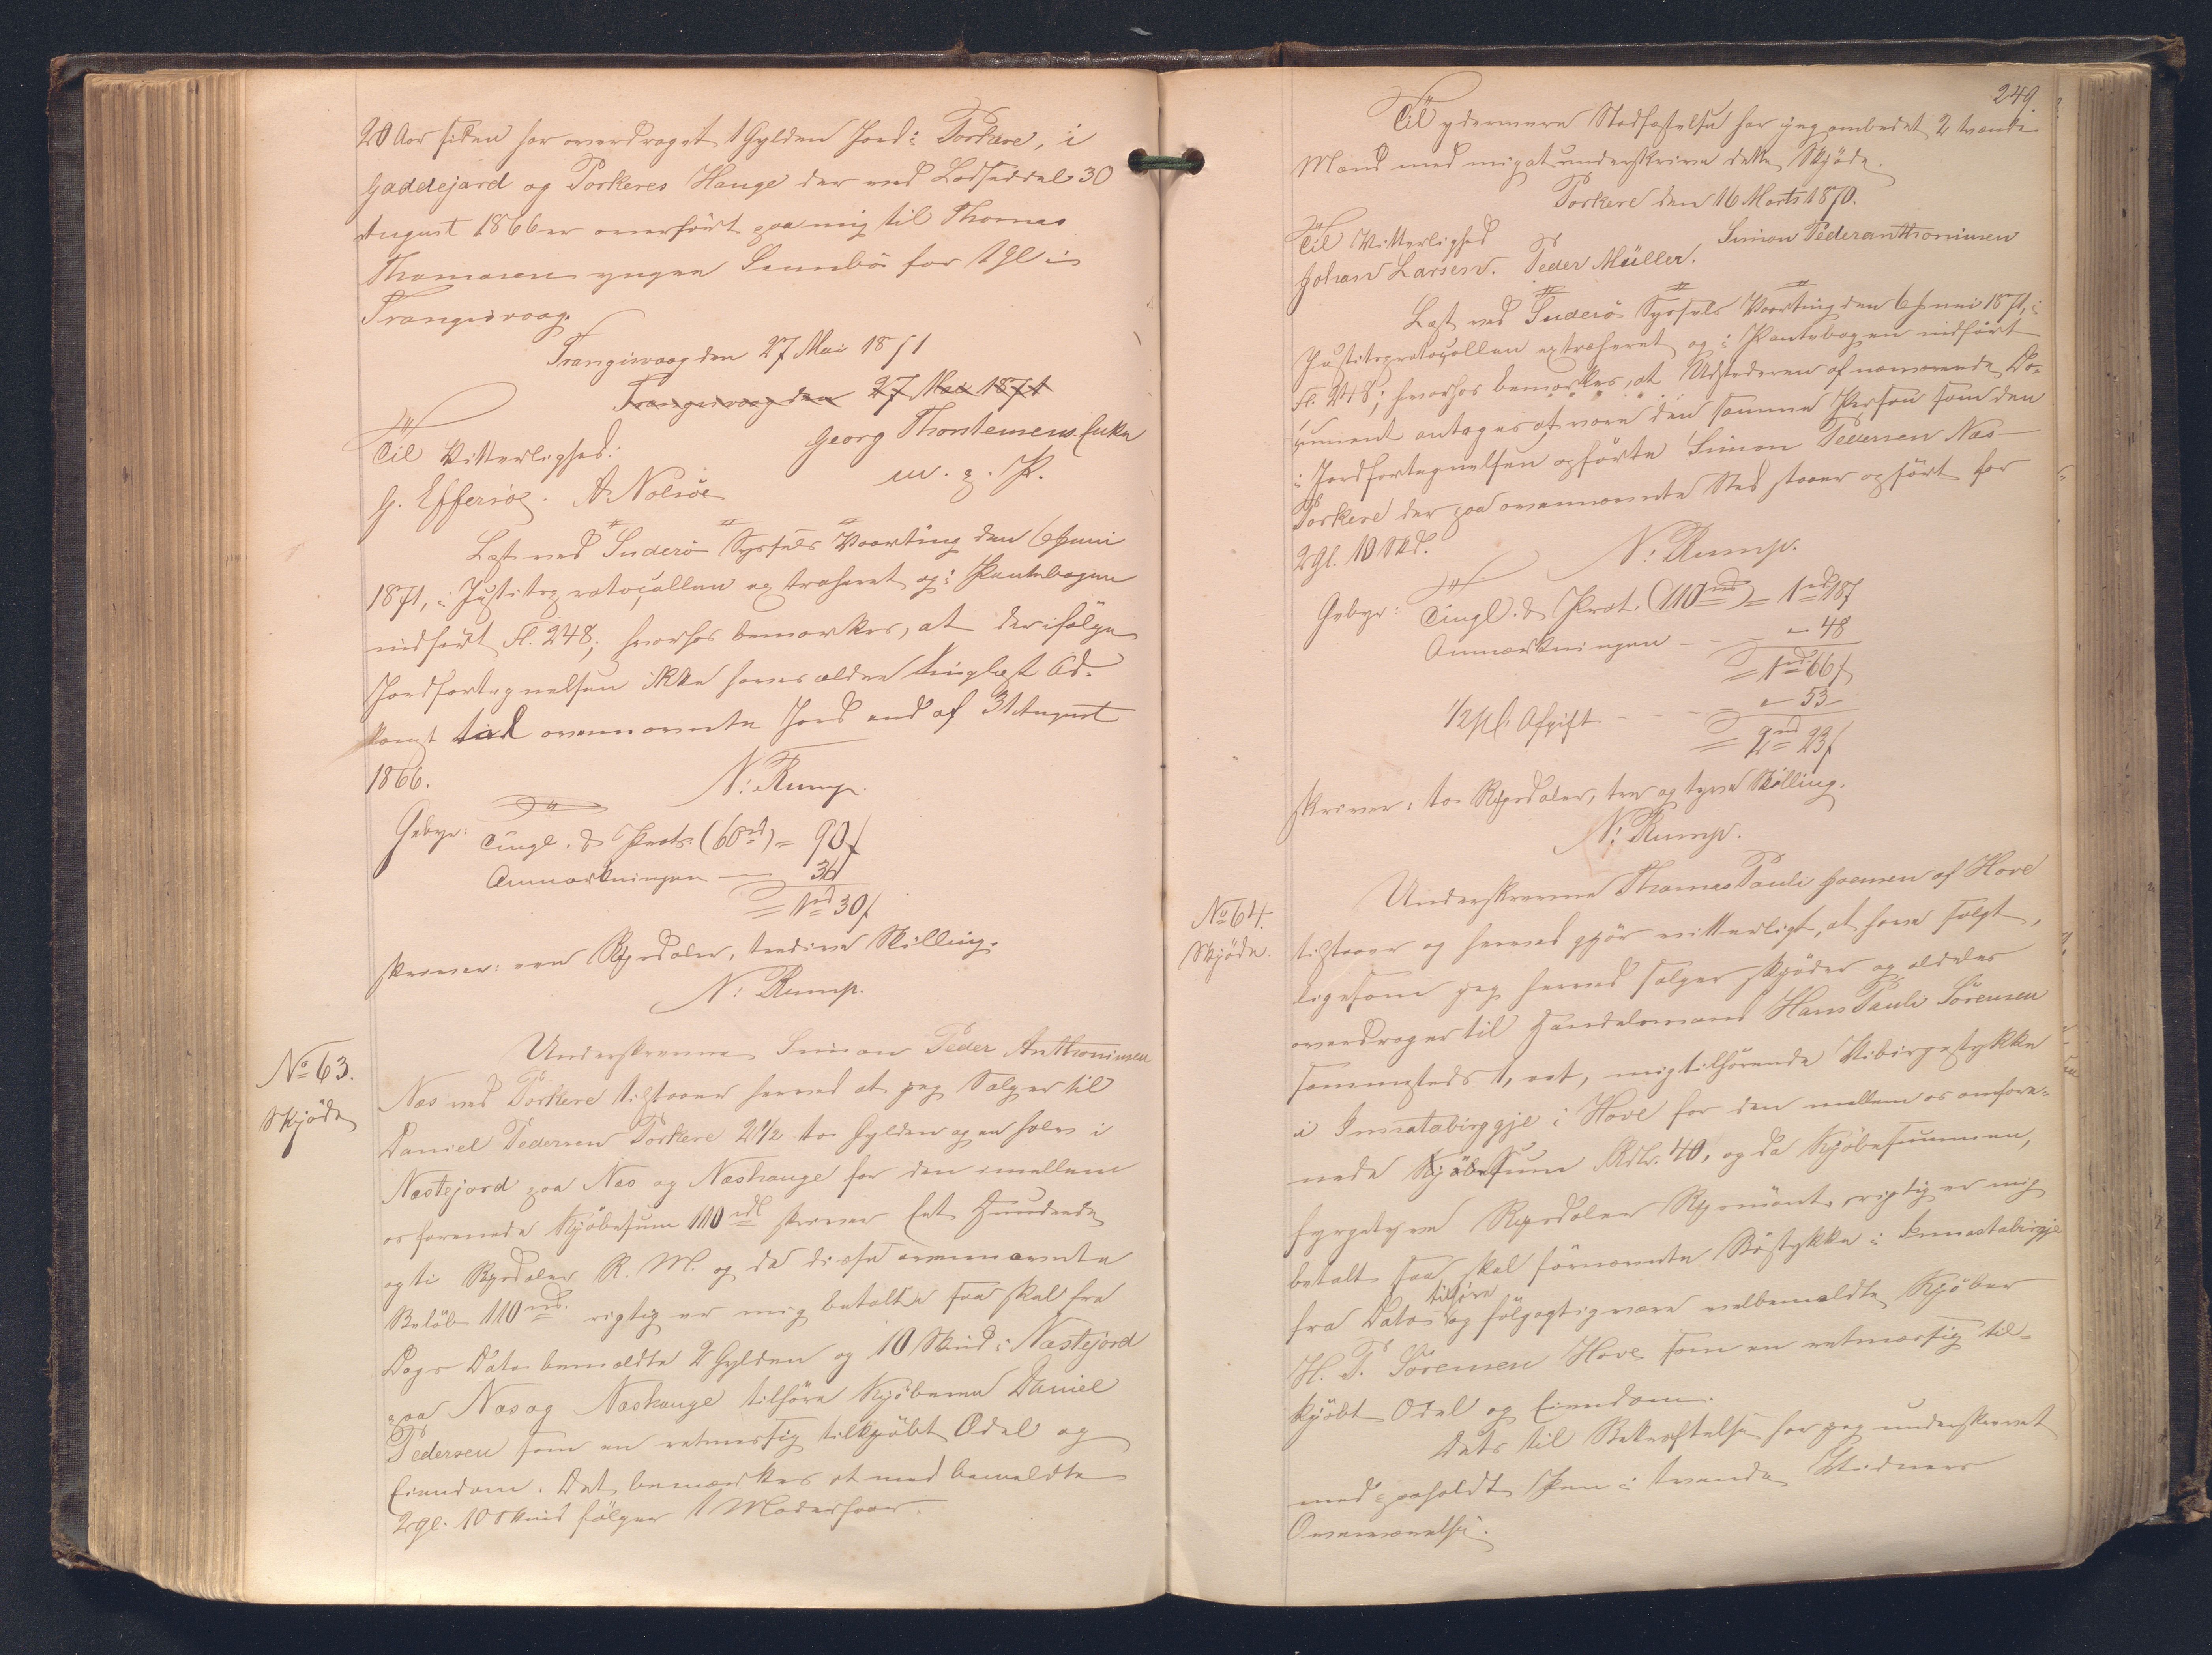 20 Aar siden har overdraget 1 Gylden Jord i Porkere, i
Gaddejard og Porkeres Hauge der ved Lodseddel 30
August 1866 er overført paa mig til Thomas
Thomasen yngre Sumbø for 1 Gl i
Trangisvaag.
Trangisvaag den 27 Mai 1871
Trangisvaag den 27 Mai 1871
Til Vitterlighed:
Georg Thorsteinsens Enke
G. Effersöe. A Nolsöe
m. f. P.
Læst ved Suderö Syssels Vaarting den 6 Juni
1871, i Justitsprotocollen extraheret og i Pantebogen
indført Fl. 248; hvorhos bemærkes, at der ifølge
Jordfortegnelsen ikke haves ældre tinglæst Ad-
komst til ovennævnte Jord end af 31 August
1866.
N. Rump.
Gebyr: Tingl. & Prot. (60 rd) = 90 ſ
Anmærkningen — 36
= 1 rd 30 ſ
skriver: een Rigsdaler, tredive Skilling.
N. Rump.
No 63.
Skjöde
Underskrevne Simon Peder Anthoniusen
Næs ved Porkere tilstaaer herved at jeg Sælger til
Daniel Pedersen Porkere 2 1/2 to Gylden og en halv i
Næstejord paa Næs og Næshauge for den imellem
os forenede Kjöbesum 110 rdl skriver Eet Hundrede
og ti Rigsdaler R. M. og da disse ovennævnte
Belöb 110 rd. rigtig er mig betalt saa skal fra
Dags Dato bemældte 2 Gylden og 10 Skind i Næstejord
paa Næs og Næshauge tilhøre Kjöberen Daniel
Pedersen som en retmæssig tilkjöbt Odel og
Eiendom. Det bemærkes at med bemeldte
2 gl. 10 Skind følger 1 Moderfaar.
249.
Til ydermere Stadfæstelse har jeg ombedet 2 tvende
Mænd med mig at underskrive dette Skjöde.
Porkere den 16 Marts 1870.
Til Vitterlighed
Simon Pederanthoniusen
Johan Larsen. Peder Müller.
Læst ved Suderö Syssels Vaarting den 6 Juni 1871, i
Justitsprotocollen extraheret og i Pantebogen indført
Fl. 248; hvorhos bemærkes, at Udstederen af nærværende Do-
cument antages at være den samme Person som den
i Jordfortegnelsen opførte Simon Pedersen Næs
Porkere der paa ovennævnte Sted staaer opført for
2 gl. 10 Skd.
N. Rump.
Gebyr: Tingl. & Prot. (110 rd) = 1 rd 18 ſ
Anmærkningen - - " 48
= 1 rd 66 ſ
1/2 pCt. Afgift - - - " 53
= 2 rd 23 ſ
skriver: to Rigsdaler, tre og tyve Skilling.
N. Rump.
No 64.
Skjöde.
Underskrevne Thomas Pauli Joensen af Hove
tilstaaer og herved gjör vitterligt, at have solgt,
ligesom jeg herved sælger skjöder og aldeles
overdrager til Handelsmand Hans Pauli Sörensen
sammesteds 1, eet, mig tilhørende
i Innatabirggje i Hove for den mellem os omfore-
nede Kjöbesum Rdlr. 40, og da Kjöbesummen,
fyrgetyve Rigsdaler Rigsmönt, rigtig er mig
betalt, saa skal førnævnte i Innastabirgje
fra Dato tilhøre og følgagtig være velbemældte Kjöber
H. P. Sörensen Hove som en retmæssig til-
kjöbt Odel og Eiendom.
Dets til Bekræftelse har jeg underskrevet
med paaholdt Pen i tvende Vidners
Overværelse.